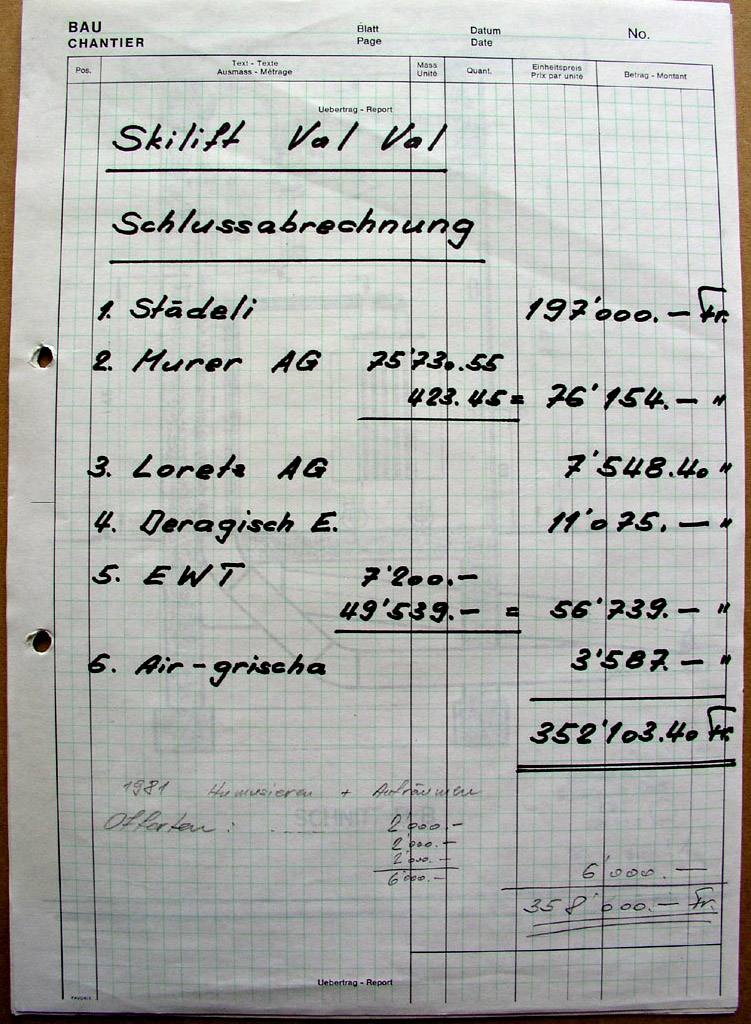 BAU Blatt Datum No.
CHANTIER Page Date
Pos. Text - Texte Mass Quant. Einheitspreis Betrag - Montant
Ausmass - Métrage Unité Prix par unité
Uebertrag - Report
Skilift Val Val
Schlussabrechnung
1. Städeli 197'000.— Fr.
2. Murer AG 75'730.55
423.45 = 76'154.— "
3. Loretz AG 7'548.40 "
4. Deragisch E. 11'075.— "
5. EWT 7'200.—
49'539.— = 56'739.— "
6. Air-grischa 3'587.— "
352'103.40 Fr.
1981 Humusieren + Aufräumen
Offerten : 2'000.—
2'000.—
2'000.—
6'000.— 6'000.—
358'000.— Fr.
Uebertrag - Report
FAVORIT